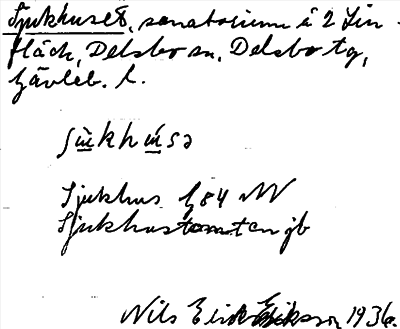 Sjukhuset, sanatorium å 2 Lin-
fläck, Delsbo sn, Delsbo tg,
Gävleb. l.
Sjukhus
Sjukhustomten jb
Nils Erik Eriksson 1936.